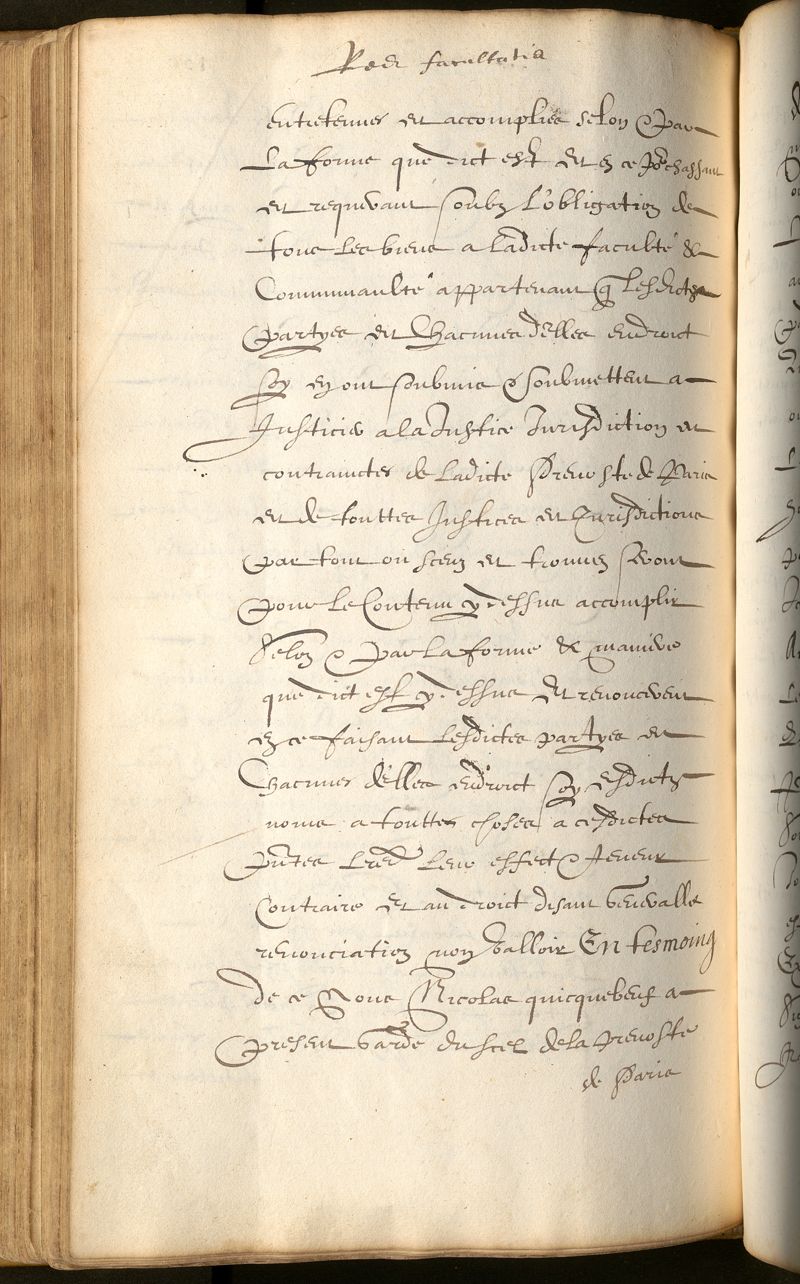 facultatis
entretenues et accomplies selon & Par
La forme que dict est Et en ce Pourchassant
et requerant soubz L'obligation de
tous les biens a ladicte faculté &
Communaulté appartenant que lesdictes
partyes et Chacunes d'elles endroict
soy en ont soubmis & soubmettent a
Justicier a la Justice Jurisdiction et
contrainctes de ladicte Prevosté de Paris
et de touttes Justices et Jurisdictions
par tout ou sceuz et trouvez seront
pour le Contenu cy dessus accomplir
Selon & Par La forme & maniere
que dict est cy dessus Et renoncerent
en ce faisant lesdictes partyes et
Chacunes d'elles endroict soy esdictz
noms a touttes choses a cesdictes
pntes Lres Leur effect & teneur
Contraire et au droict disant Generalle
renonciation non Valloir En tesmoing
de ce Nous Nicolas quicquebeuf a
present Garde du scel de la prevosté
de Paris